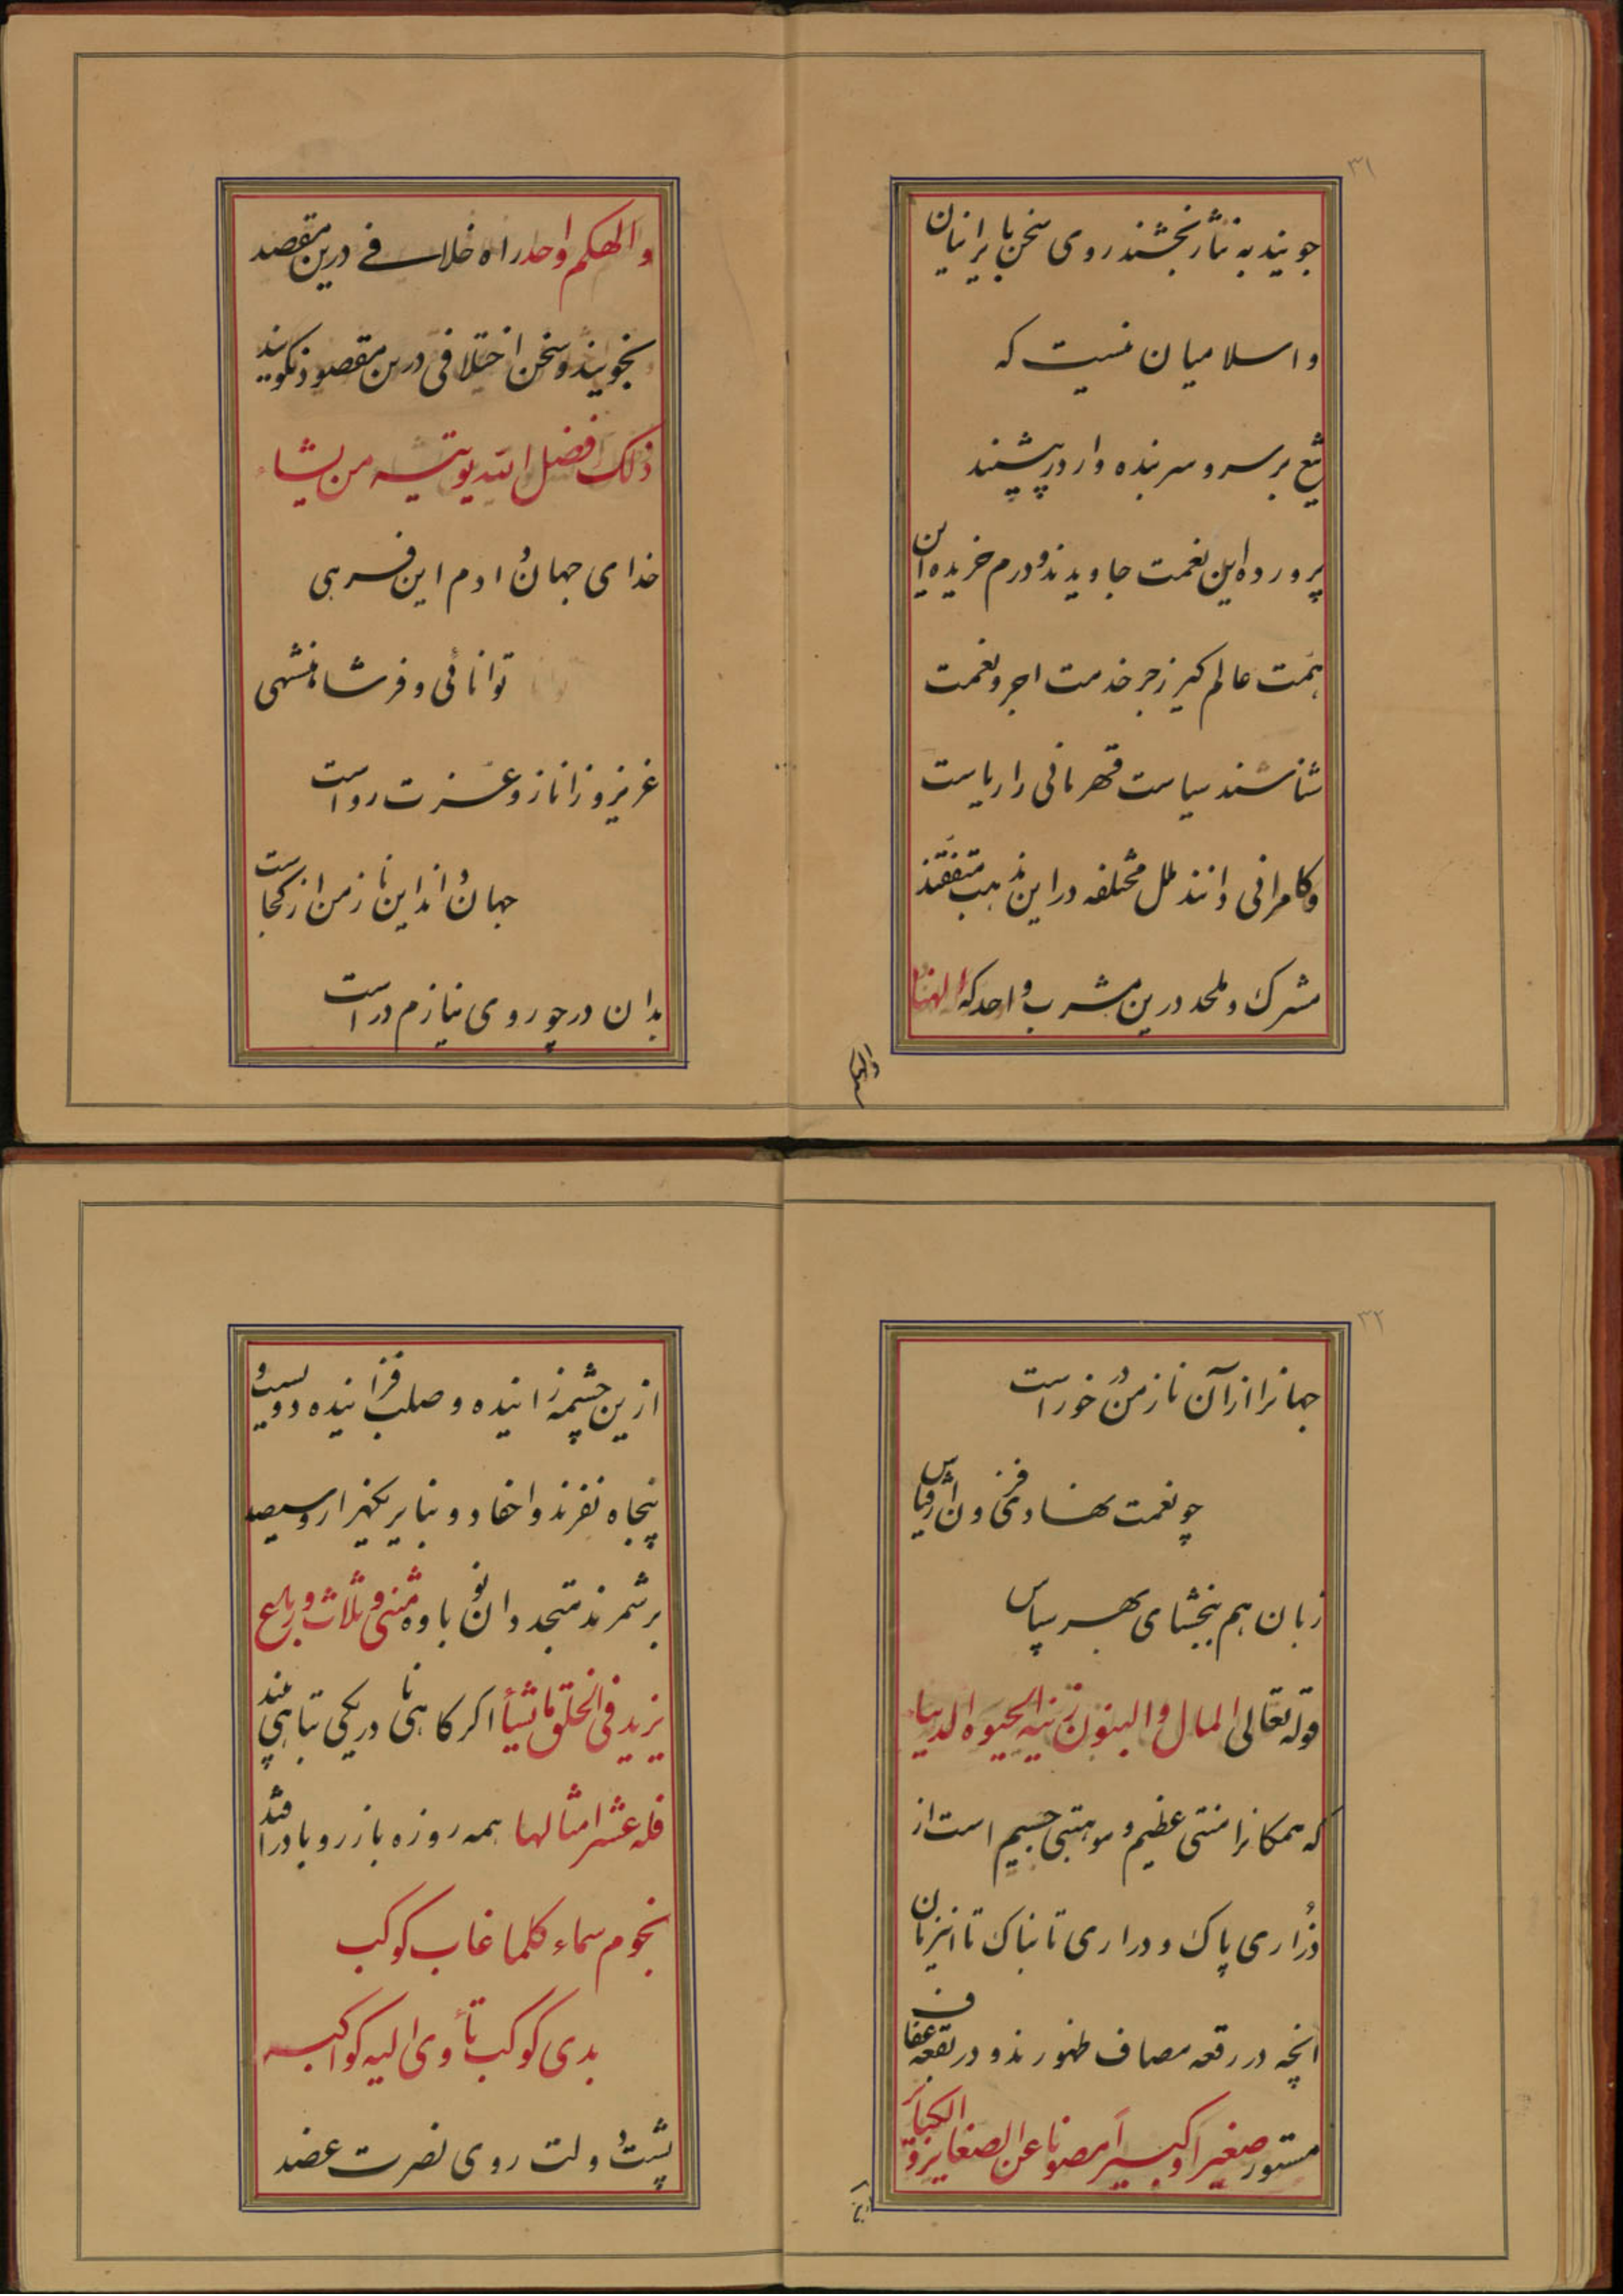 ۳۱
جویند به نثار بخشند روی سخن با یرانیان
و اسلامیان نیست که
تیغ بر سر و سر بنده وار در پیشند
پرورده این نعمت جاویدند و درم خریده این
همت عالم کیر زجر خدمت اجر و نعمت
شناسند سیاست قهرمانی را ریاست
و کامرانی دانند ملل مختلفه در این مذهب متفقند
مشرک و ملحد درین مشرب واحد که الهنا
والهکم
والهکم واحد راه خلافی درین مقصد
نجویند و سخن اختلافی درین مقصود نکویند
ذلک فضل الله یوتیه من یشاء
خدای جهان دادم این فرهی
توانائی و فر شاهنشهی
عزیز و زاناز و عزت رواست
جهان داند این ناز من از کجاست
بدان در چو روی نیازم در است
۳۲
جهانرا از آن ناز من در خور است
چو نعمت نهادی فزون از قیاس
زبان هم ببخشای بهر سپاس
قوله تعالی المال والبنون زینه الحیوه الدنیا
که همکانرا منتی عظیم و موهبتی جسیم است از
ذراری پاک و دراری تابناک تا این زمان
انچه در رقعه مصاف ظهورند و در بقعه عفاف
مستور صغیرا و کبیرا مصونا عن الصغایر و الکبایر
ازین
ازین چشمه زاینده و صلب فزاینده دویست و
پنجاه نفرند و احفاد و نبایر یکهزار و سیصد
بر شمرند متجددان نو باوه مثنی و ثلاث و رباع
یزید فی الخلق ما یشأ اکر کاهی نا در یکی تباهی بیند
فله عشر امثالها همه روزه باز رو با در افتد
نجوم سماء کلما غاب کوکب
بدی کوکب تأوی الیه کواکبه
پشت دولت روی نصرت عضد